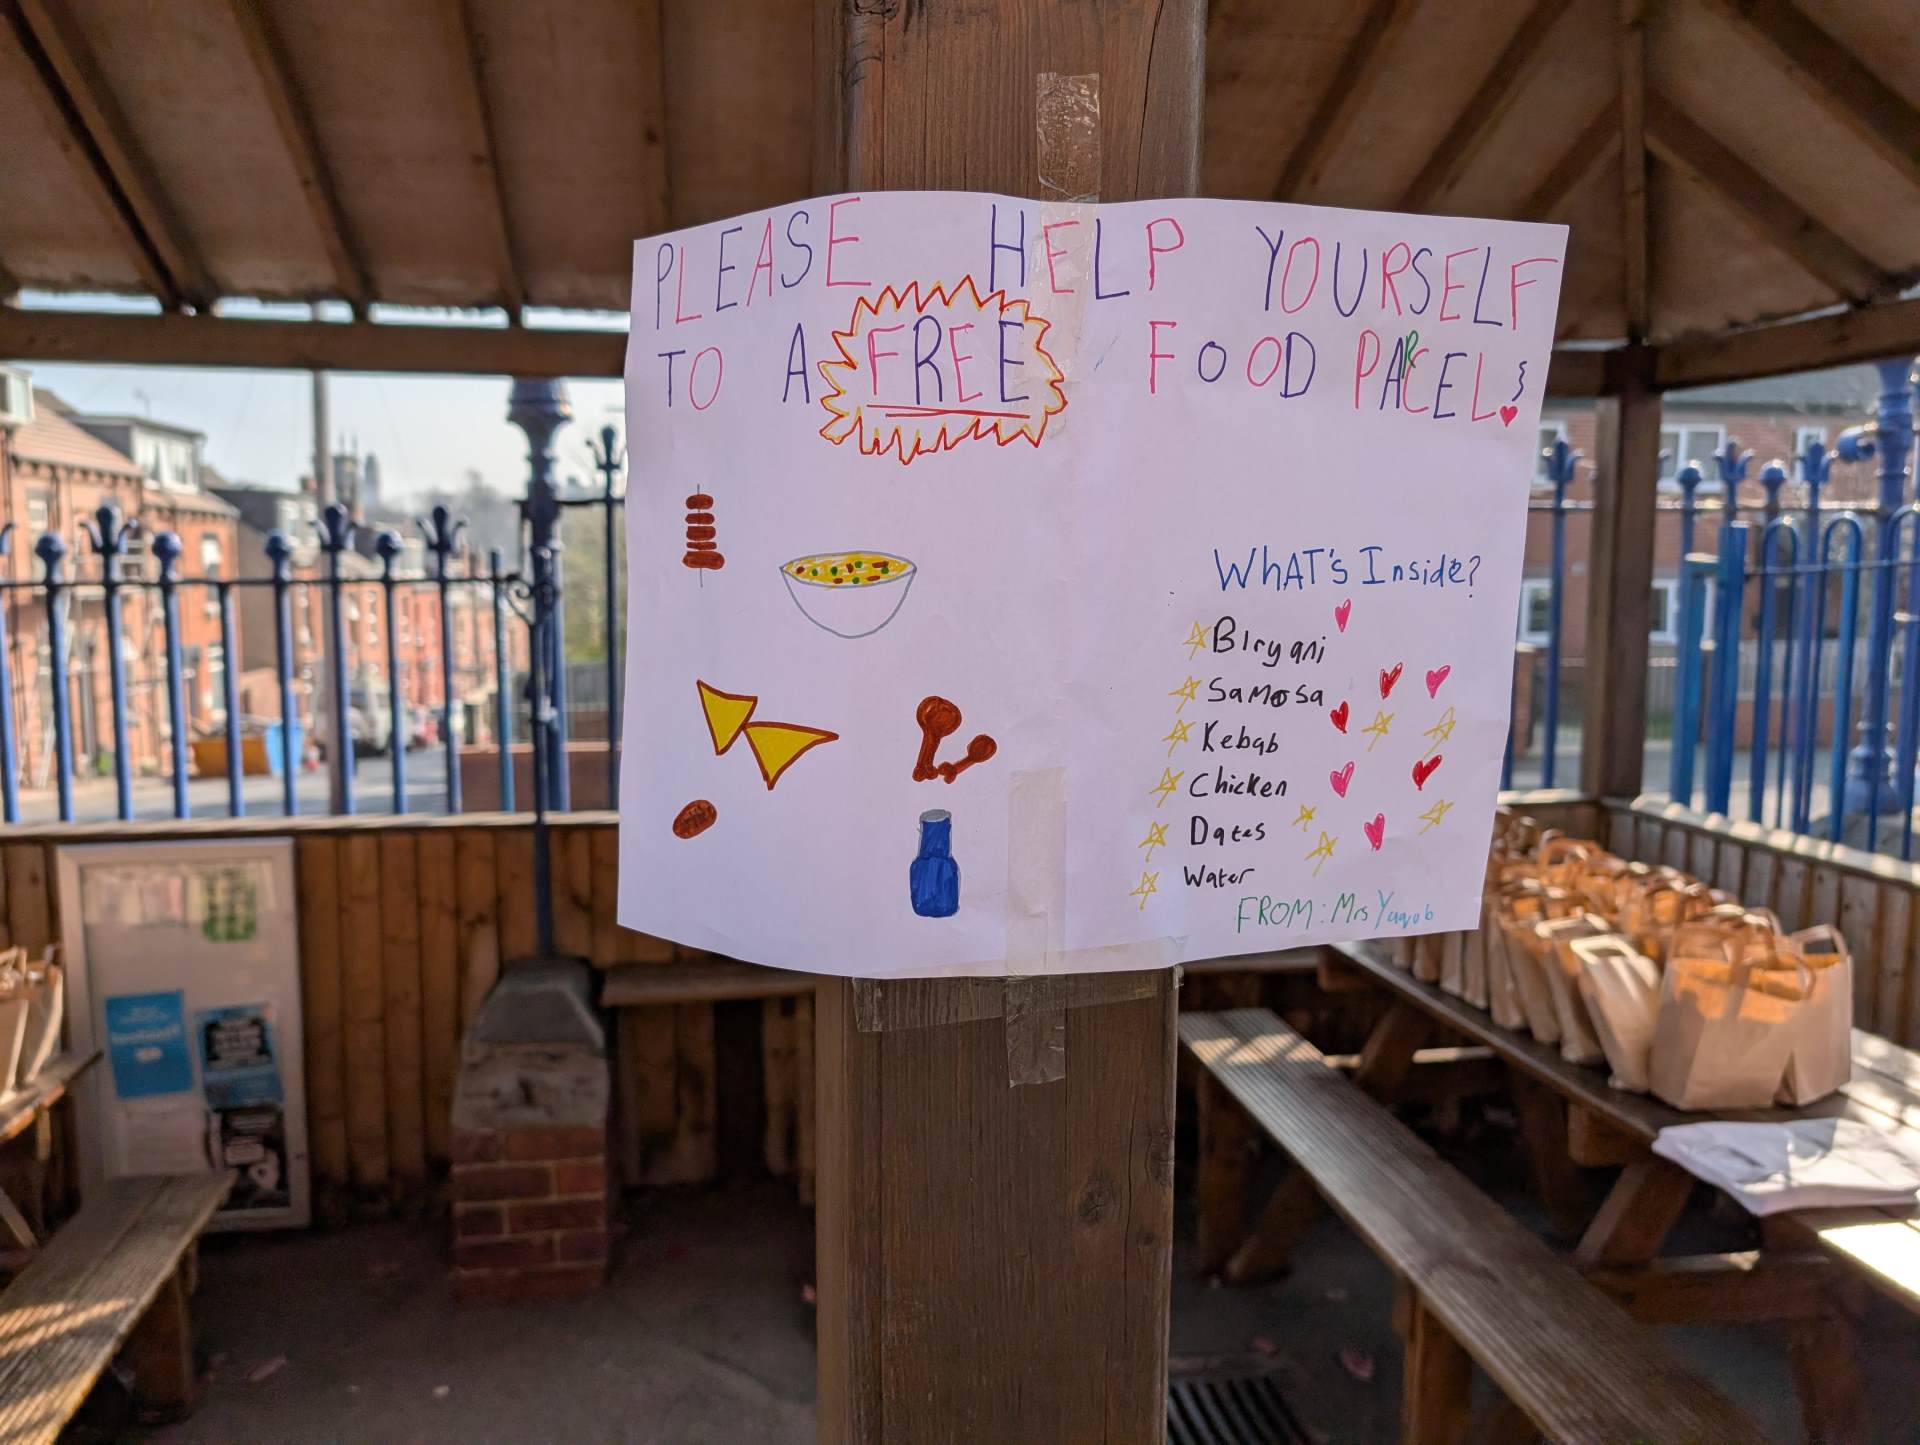 PLEASE HELP YOURSELF
TO A FREE FOOD PARCEL!
WhAT's Inside?
BIryani
SaMosa
Kebab
Chicken
Dates
Water
FROM: Mrs Yaqub